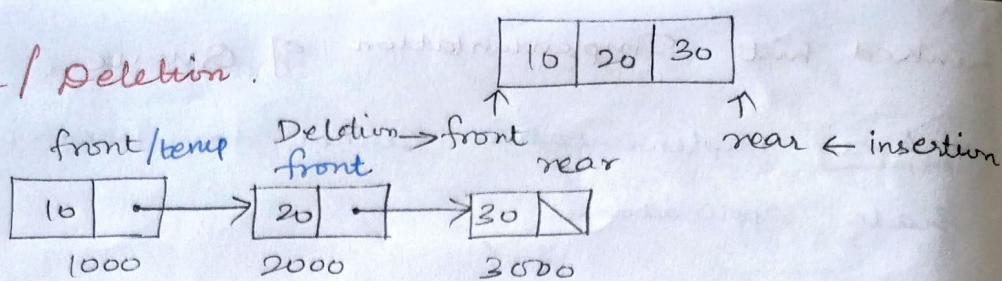 / Deletion.
10 20 30
front/temp
Deletion → front
rear ← insertion
front
rear
10 20 30
1000 2000 3000